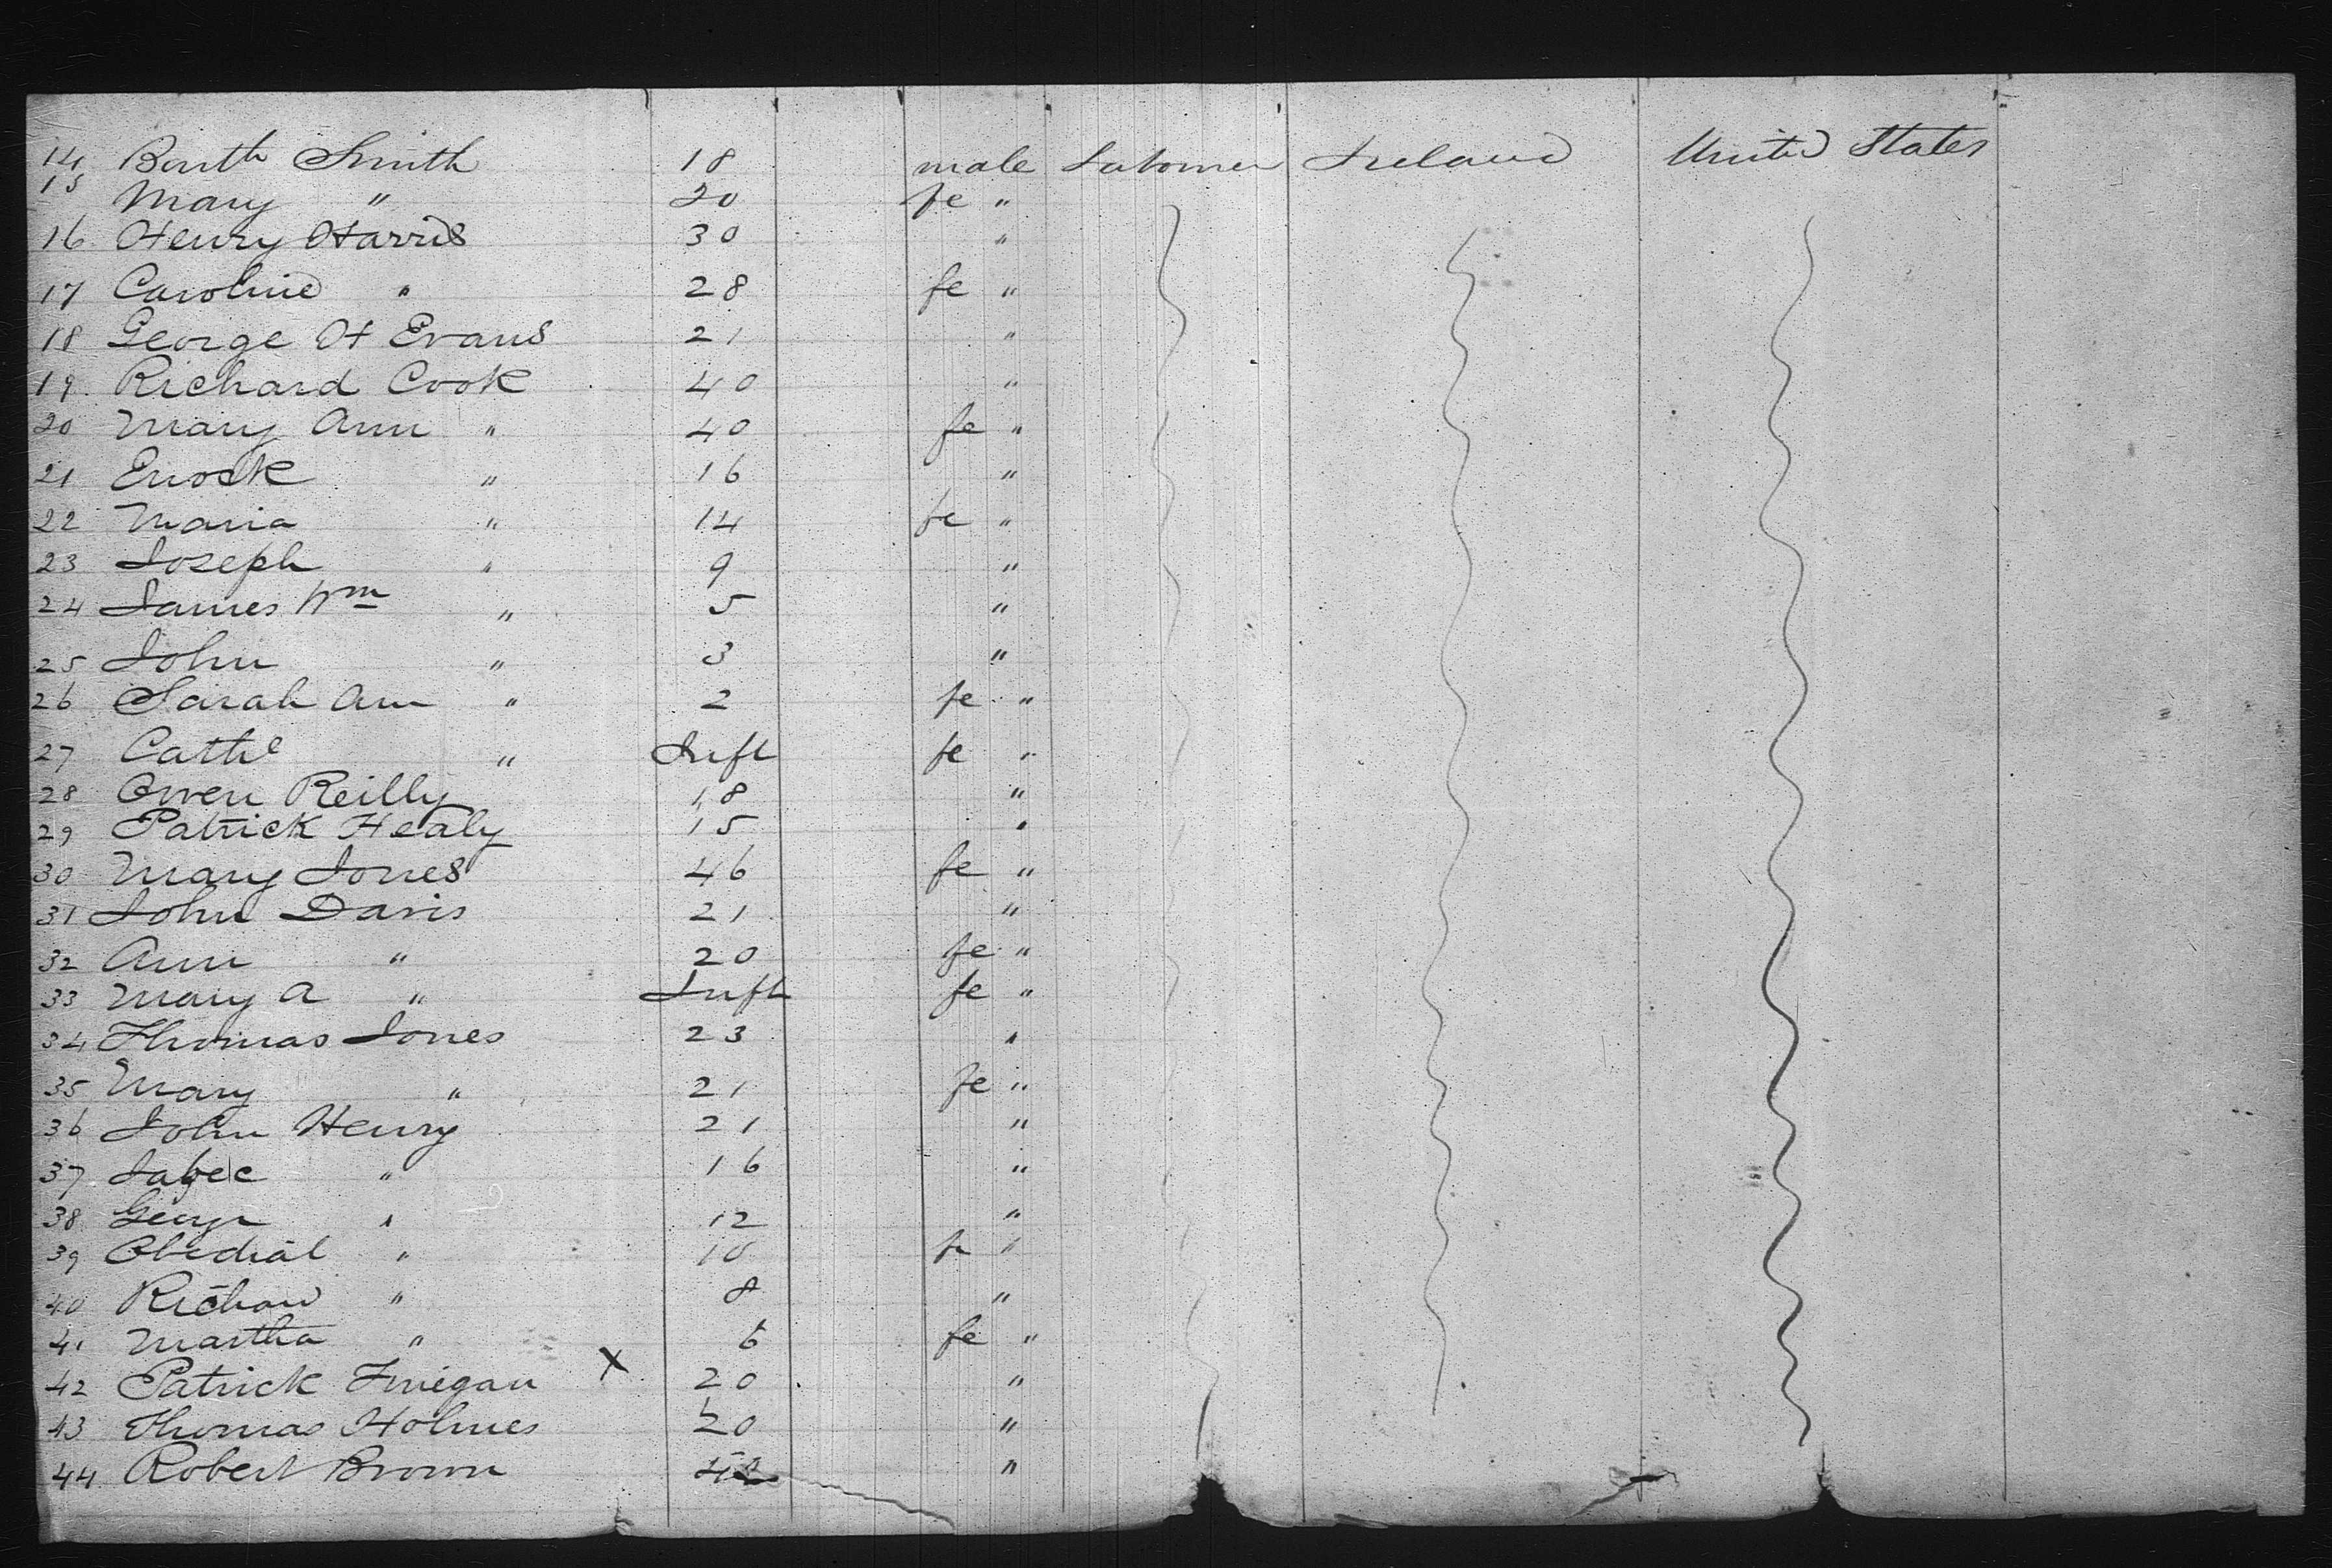 14 Barth Smith 18 male Labourer Ireland United States
15 Mary " 20 fe "
16 Henry Harris 30 "
17 Caroline " 28 fe "
18 George H Evans 21 "
19 Richard Cook 40 "
20 Mary Ann " 40 fe "
21 Enock " 16 "
22 Maria " 14 fe "
23 Joseph " 9 "
24 James Wm " 5 "
25 John " 3 "
26 Sarah Ann " 2 fe "
27 Cathe " Inft fe "
28 Owen Reilly 18 "
29 Patrick Healy 15 "
30 Mary Jones 46 fe "
31 John Davis 21 "
32 Ann " 20 fe "
33 Mary A " Inft fe "
34 Thomas Jones 23 "
35 Mary " 21 fe "
36 John Henry 21 "
37 " 16 "
38 George " 12 "
39 " 10 fe "
40 Richard " 8 "
41 Martha " 6 fe "
42 Patrick Finegan X 20 "
43 Thomas Holmes 20 "
44 Robert Brown "